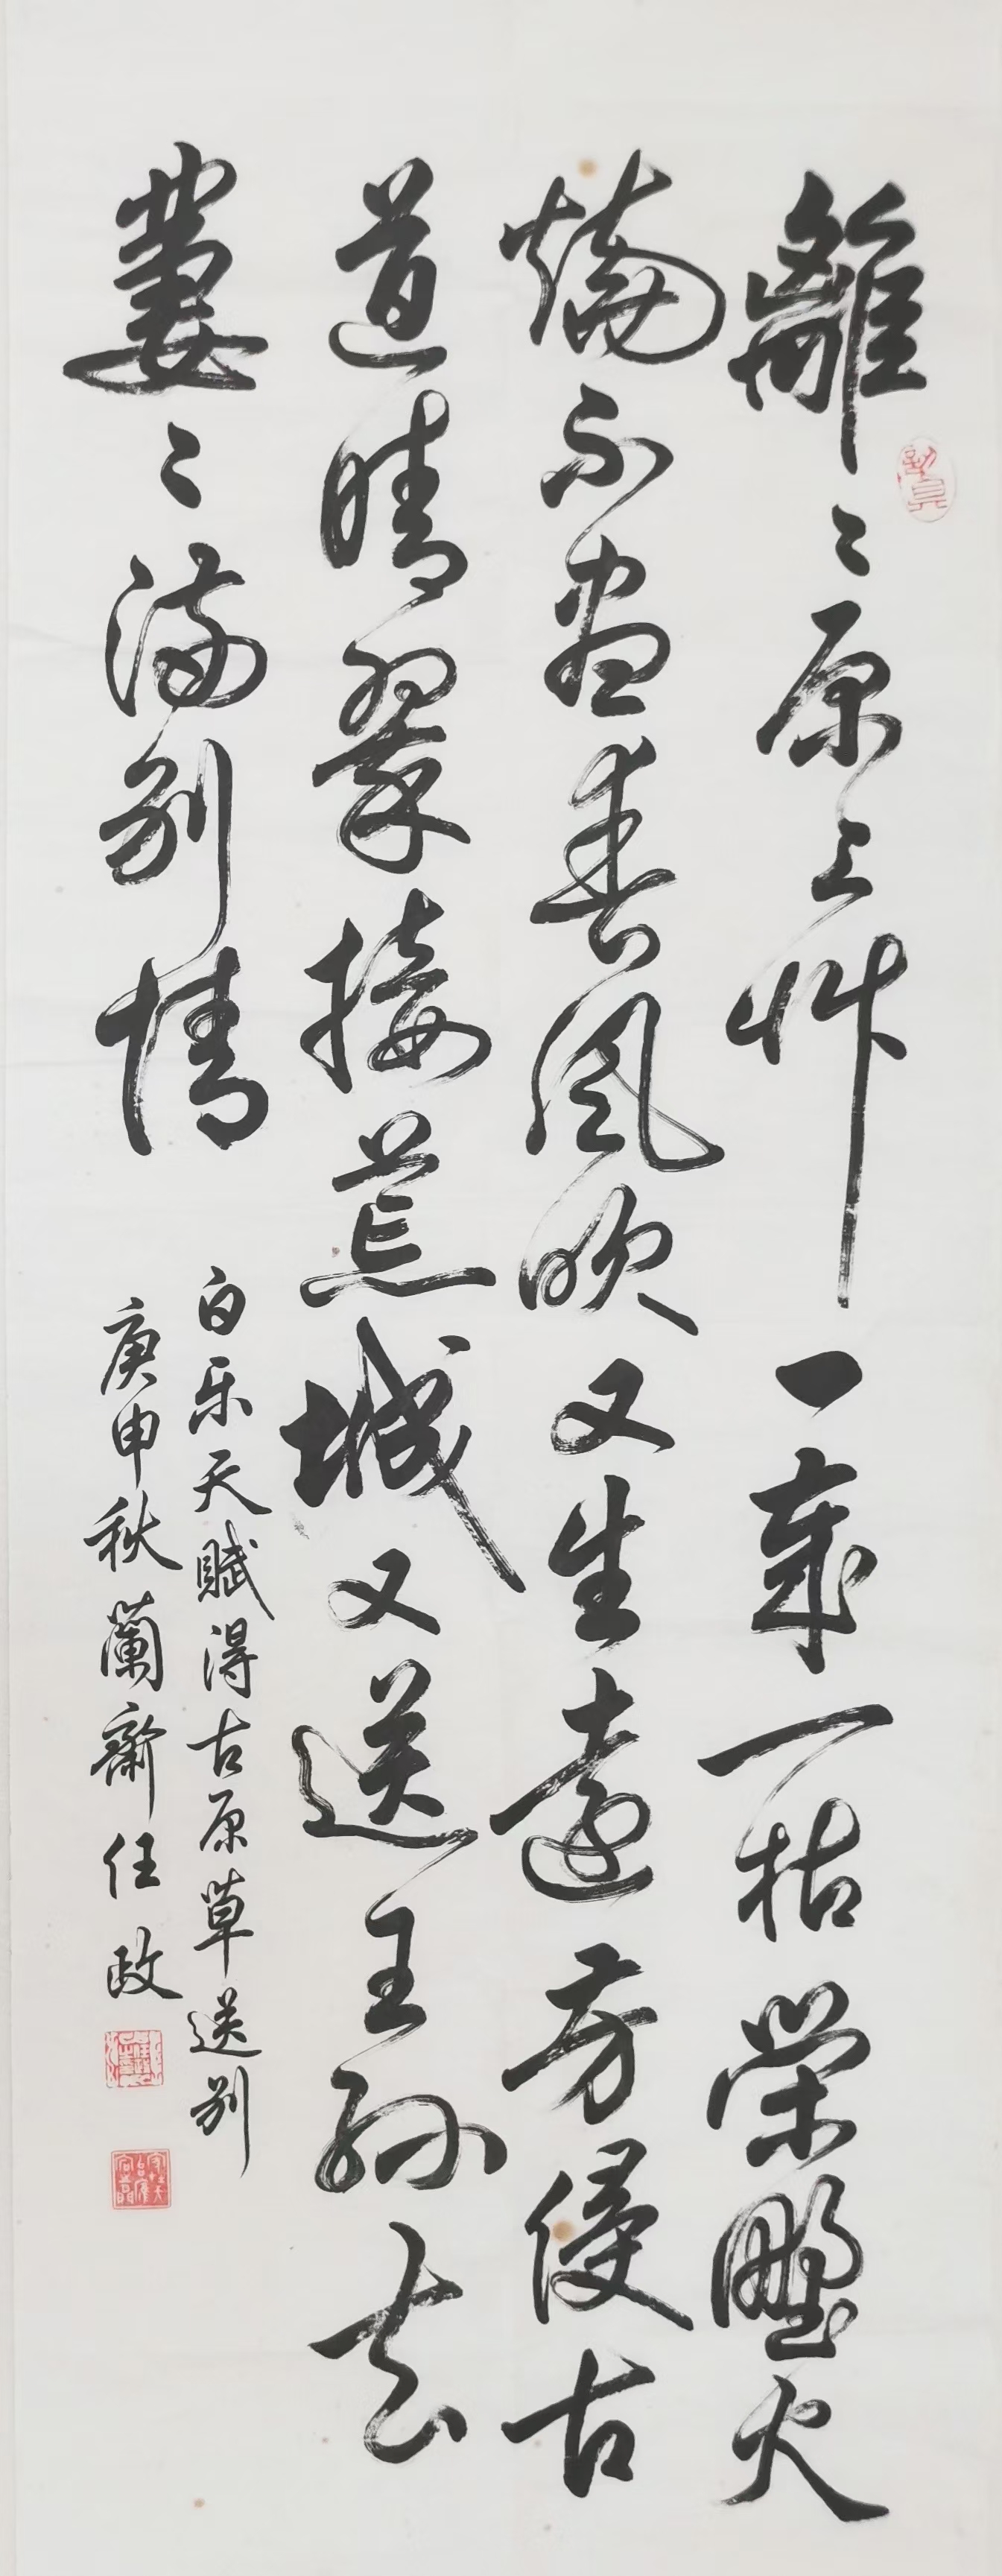 離〻原上艸一岁一枯榮野火
燒不盡春風吹又生遠芳侵古
道晴翠接荒城又送王孫去
萋〻滿別情
白乐天賦得古原草送别
庚申秋蘭齋任政